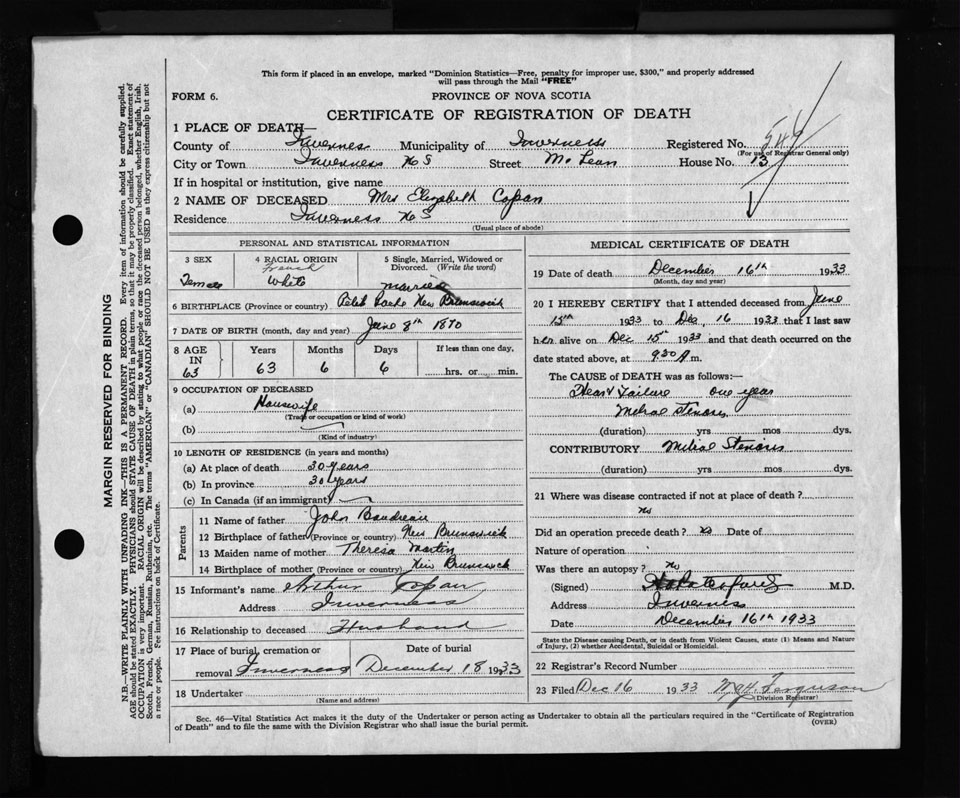 This form if placed in an envelope, marked "Dominion Statistics—Free, penalty for improper use, $300," and properly addressed
will pass through the Mail "FREE"
FORM 6.
PROVINCE OF NOVA SCOTIA
CERTIFICATE OF REGISTRATION OF DEATH
1 PLACE OF DEATH—
County of Inverness Municipality of Inverness Registered No. 546
(For use of Registrar General only)
City or Town Inverness N S Street McLean House No. 13
If in hospital or institution, give name
2 NAME OF DECEASED Mrs Elizabeth Copan
Residence Inverness N S
(Usual place of abode)
PERSONAL AND STATISTICAL INFORMATION
3 SEX
Female
4 RACIAL ORIGIN
French
White
5 Single, Married, Widowed or
Divorced. (Write the word)
married
6 BIRTHPLACE (Province or country) New Brunswick
7 DATE OF BIRTH (month, day and year) June 8th 1870
8 AGE IN 63
Years Months Days If less than one day,
63 6 6 hrs. or min.
9 OCCUPATION OF DECEASED
(a) Housewife
(Trade or occupation or kind of work)
(b)
(Kind of industry)
10 LENGTH OF RESIDENCE (in years and months)
(a) At place of death 30 years
(b) In province 30 years
(c) In Canada (if an immigrant)
Parents
11 Name of father John Boudreau
12 Birthplace of father (Province or country) New Brunswick
13 Maiden name of mother Theresa Martin
14 Birthplace of mother (Province or country) New Brunswick
15 Informant's name Arthur Copan
Address Inverness
16 Relationship to deceased Husband
17 Place of burial, cremation or Date of burial
removal Inverness December 18 1933
18 Undertaker
(Name and address)
MEDICAL CERTIFICATE OF DEATH
19 Date of death December 16th 1933
(Month, day and year)
20 I HEREBY CERTIFY that I attended deceased from June
15th 1933 to Dec, 16 1933 that I last saw
her alive on Dec 15th 1933 and that death occurred on the
date stated above, at 930 A m.
The CAUSE OF DEATH was as follows:—
Heart Failure one year
Mitral Stenosis
(duration) yrs mos dys.
CONTRIBUTORY Mitral Stenosis
(duration) yrs. mos. dys.
21 Where was disease contracted if not at place of death?
No
Did an operation precede death? No Date of
Nature of operation
Was there an autopsy? No
(Signed) M.D.
Address Inverness
Date December 16th 1933
State the Disease causing Death, or in death from Violent Causes, state (1) Means and Nature
of Injury, (2) whether Accidental, Suicidal or Homicidal.
22 Registrar's Record Number
23 Filed Dec 16 1933 Ferguson
(Division Registrar)
Sec. 46—Vital Statistics Act makes it the duty of the Undertaker or person acting as Undertaker to obtain all the particulars required in the "Certificate of Registration
of Death" and to file the same with the Division Registrar who shall issue the burial permit.
(OVER)
MARGIN RESERVED FOR BINDING
N.B.—WRITE PLAINLY WITH UNFADING INK—THIS IS A PERMANENT RECORD. Every item of information should be carefully supplied.
AGE should be stated EXACTLY. PHYSICIANS should STATE CAUSE OF DEATH in plain terms, so that it may be properly classified. Exact statement of
OCCUPATION is very important. RACIAL ORIGIN will be described by stating to what people or race the deceased person belonged, whether English, Irish,
Scotch, French, German, Russian, Ruthenian, etc. The terms "AMERICAN" or "CANADIAN" SHOULD NOT BE USED as they express citizenship but not
a race or people. Fee instructions on back of Certificate.